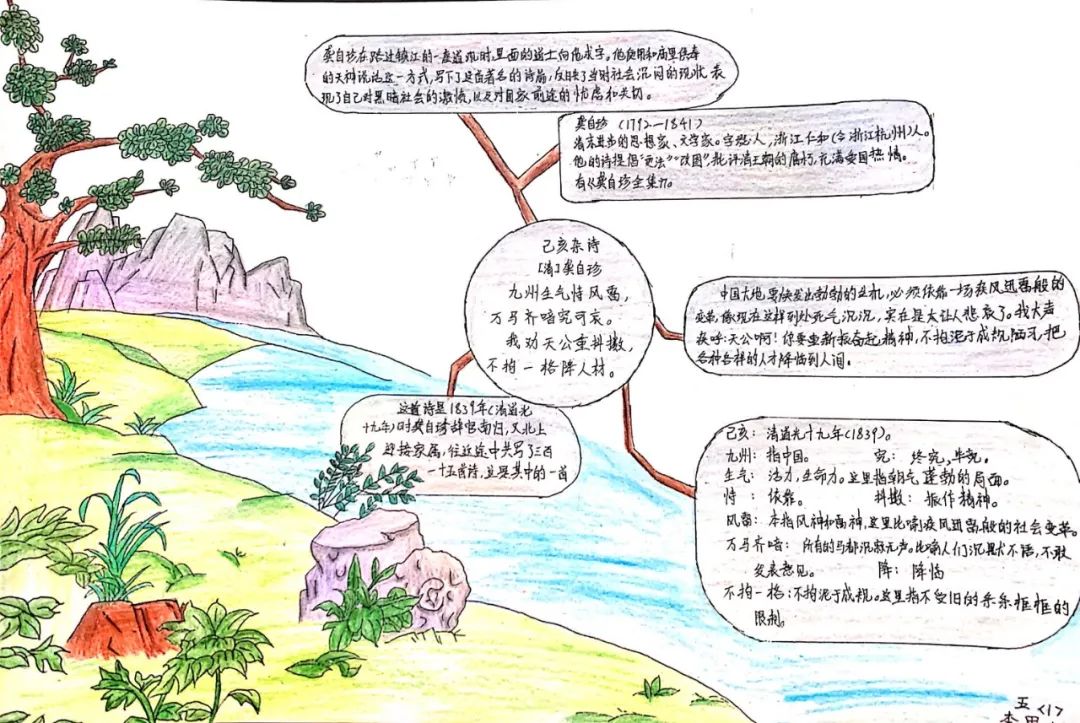 龚自珍在路过镇江的一座道观时,里面的道士向他求字。他便用和庙里供奉
的天神说话这一方式,写下了这首著名的诗篇,反映了当时社会沉闷的现状,表
现了自己对黑暗社会的激愤,以及对国家前途的忧虑和关切。
龚自珍 (1792—1841)
清末进步的思想家、文学家。字瑟人,浙江仁和(今浙江杭州)人。
他的诗提倡"更法""改图",批评清王朝的腐朽,充满爱国热情。
有《龚自珍全集》。
己亥杂诗
[清]龚自珍
九州生气恃风雷,
万马齐喑究可哀。
我劝天公重抖擞,
不拘一格降人材。
中国大地要焕发出勃勃的生机,必须依靠一场疾风迅雷般的
变革,像现在这样到处死气沉沉,实在是太让人悲哀了。我大声
疾呼:天公啊!你要重新振奋起精神,不拘泥于成规陋习,把
各种各样的人才降临到人间。
这首诗是1839年(清道光
十九年)时龚自珍辞官南归,又北上
迎接家属,往返途中共写了三百
一十五首诗,这是其中的一首
己亥:清道光十九年(1839)。
九州:指中国。 究:终究,毕竟。
生气:活力,生命力。这里指朝气蓬勃的局面。
恃:依靠。 抖擞:振作精神。
风雷:本指风神和雷神,这里比喻疾风迅雷般的社会变革。
万马齐喑:所有的马都沉寂无声。比喻人们沉默不语,不敢
发表意见。 降:降临
不拘一格:不拘泥于成规。这里指不受旧的条条框框的
限制。
五<1>
李